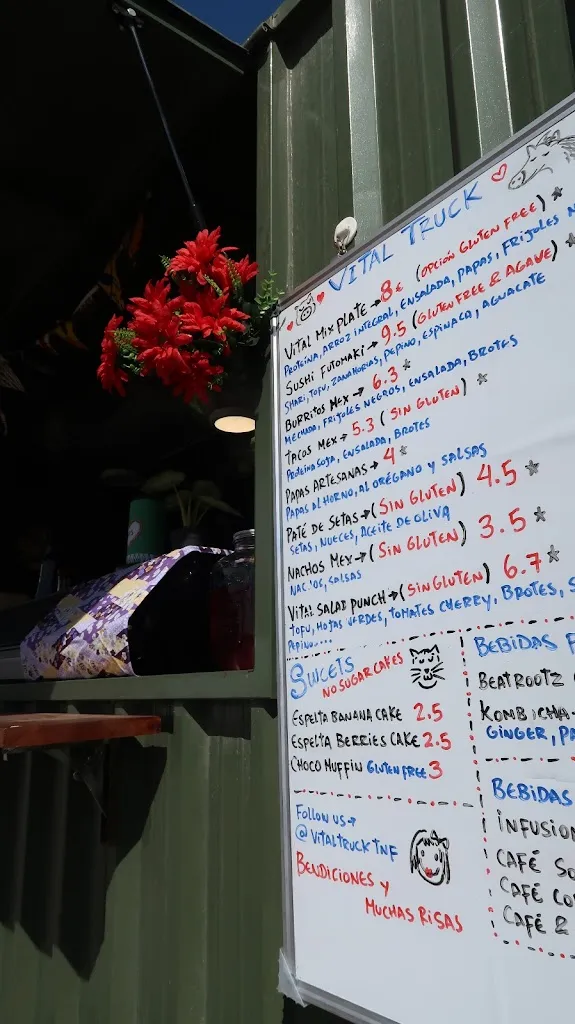 VITAL TRUCK
VITAL MIX PLATE → 8€ (OPCIÓN GLUTEN FREE)
PROTEÍNA, ARROZ INTEGRAL, ENSALADA, PAPAS, FRIJOLES N
SUSHI FUTOMAKI → 9.5 (GLUTEN FREE & AGAVE)
SHARI, TOFU, ZANAHORIAS, PEPINO, ESPINACA, AGUACATE
BURRITOS MEX → 6.3
MECHADA, FRIJOLES NEGROS, ENSALADA, BROTES
TACOS MEX → 5.3 (SIN GLUTEN)
PROTEINA SOJA, ENSALADA, BROTES
PAPAS ARTESANAS → 4
PAPAS AL HORNO, AL ORÉGANO Y SALSAS
PATÉ DE SETAS → (SIN GLUTEN) 4.5
SETAS, NUECES, ACEITE DE OLIVA
NACHOS MEX → (SIN GLUTEN) 3.5
SALSAS
VITAL SALAD PUNCH → (SIN GLUTEN) 6.7
TOFU, HOJAS VERDES, TOMATES CHERRY, BROTES, S
PEPINO....
SWEETS
NO SUGAR CAKES
ESPELTA BANANA CAKE 2.5
ESPELTA BERRIES CAKE 2.5
CHOCO MUFFIN GLUTEN FREE 3
FOLLOW US →
@VITALTRUCKTNF
BENDICIONES Y
MUCHAS RISAS
BEBIDAS F
BEATROOTZ
KOMBICHA
GINGER, PA
BEBIDAS
INFUSION
CAFÉ SO
CAFÉ CO
CAFÉ